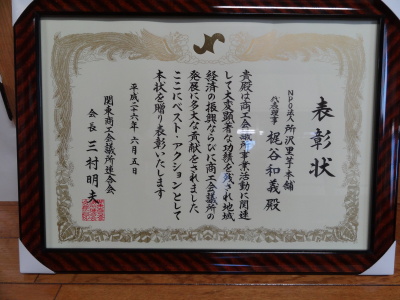 表彰状
NPO法人 所沢里芋本舗
代表理事 梶谷和義 殿
貴殿は商工会議所事業活動に関連
して大変顕著な功績を残され地域
経済の振興ならびに商工会議所の
発展に多大な貢献をされました
ここにベスト・アクションとして
本状を贈り表彰いたします
平成二十六年六月五日
関東商工会議所連合会
会長 三村明夫